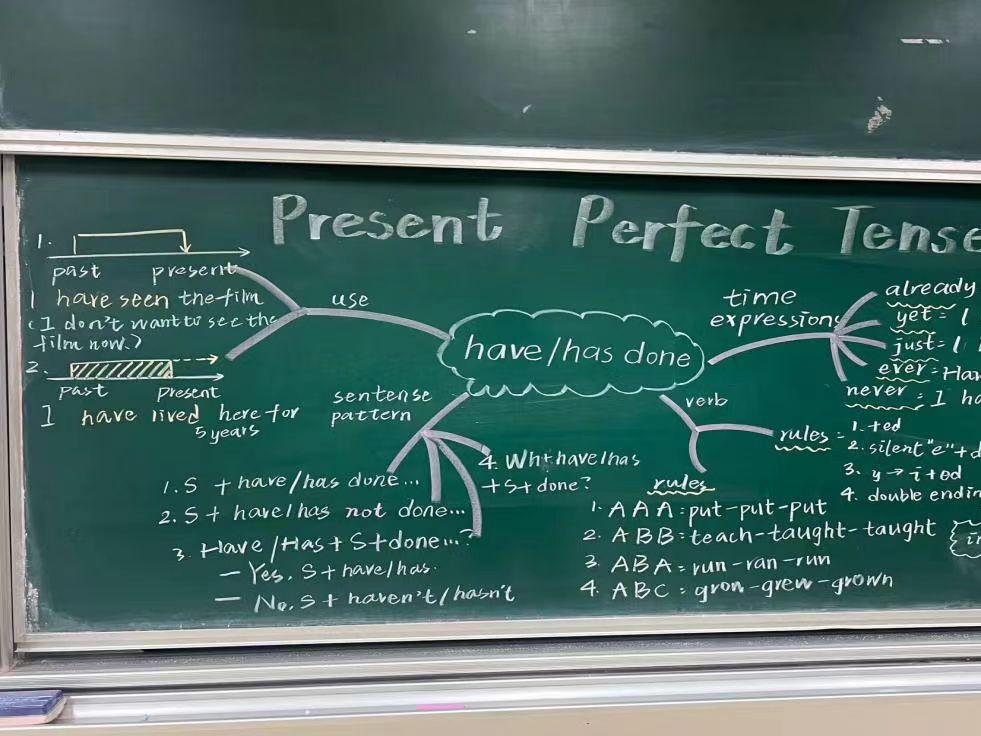 Present Perfect Tense
1.
past present
I have seen the film
(I don't want to see the
film now.)
2.
past present
I have lived here for
5 years
use
have/has done
sentense
pattern
1. S + have/has done...
2. S + have/has not done...
3. Have/Has + S + done...?
— Yes, S + have/has.
— No, S + haven't/hasn't
4. Wh+have/has
+S+done?
time
expressions
already
yet = I
just = I
ever = Hav
never = I ha
verb
rules =
1. +ed
2. silent "e" + d
3. y → i+ed
4. double endin
rules
1. AAA = put-put-put
2. ABB = teach-taught-taught
3. ABA = run-ran-run
4. ABC = gron-grew-grown